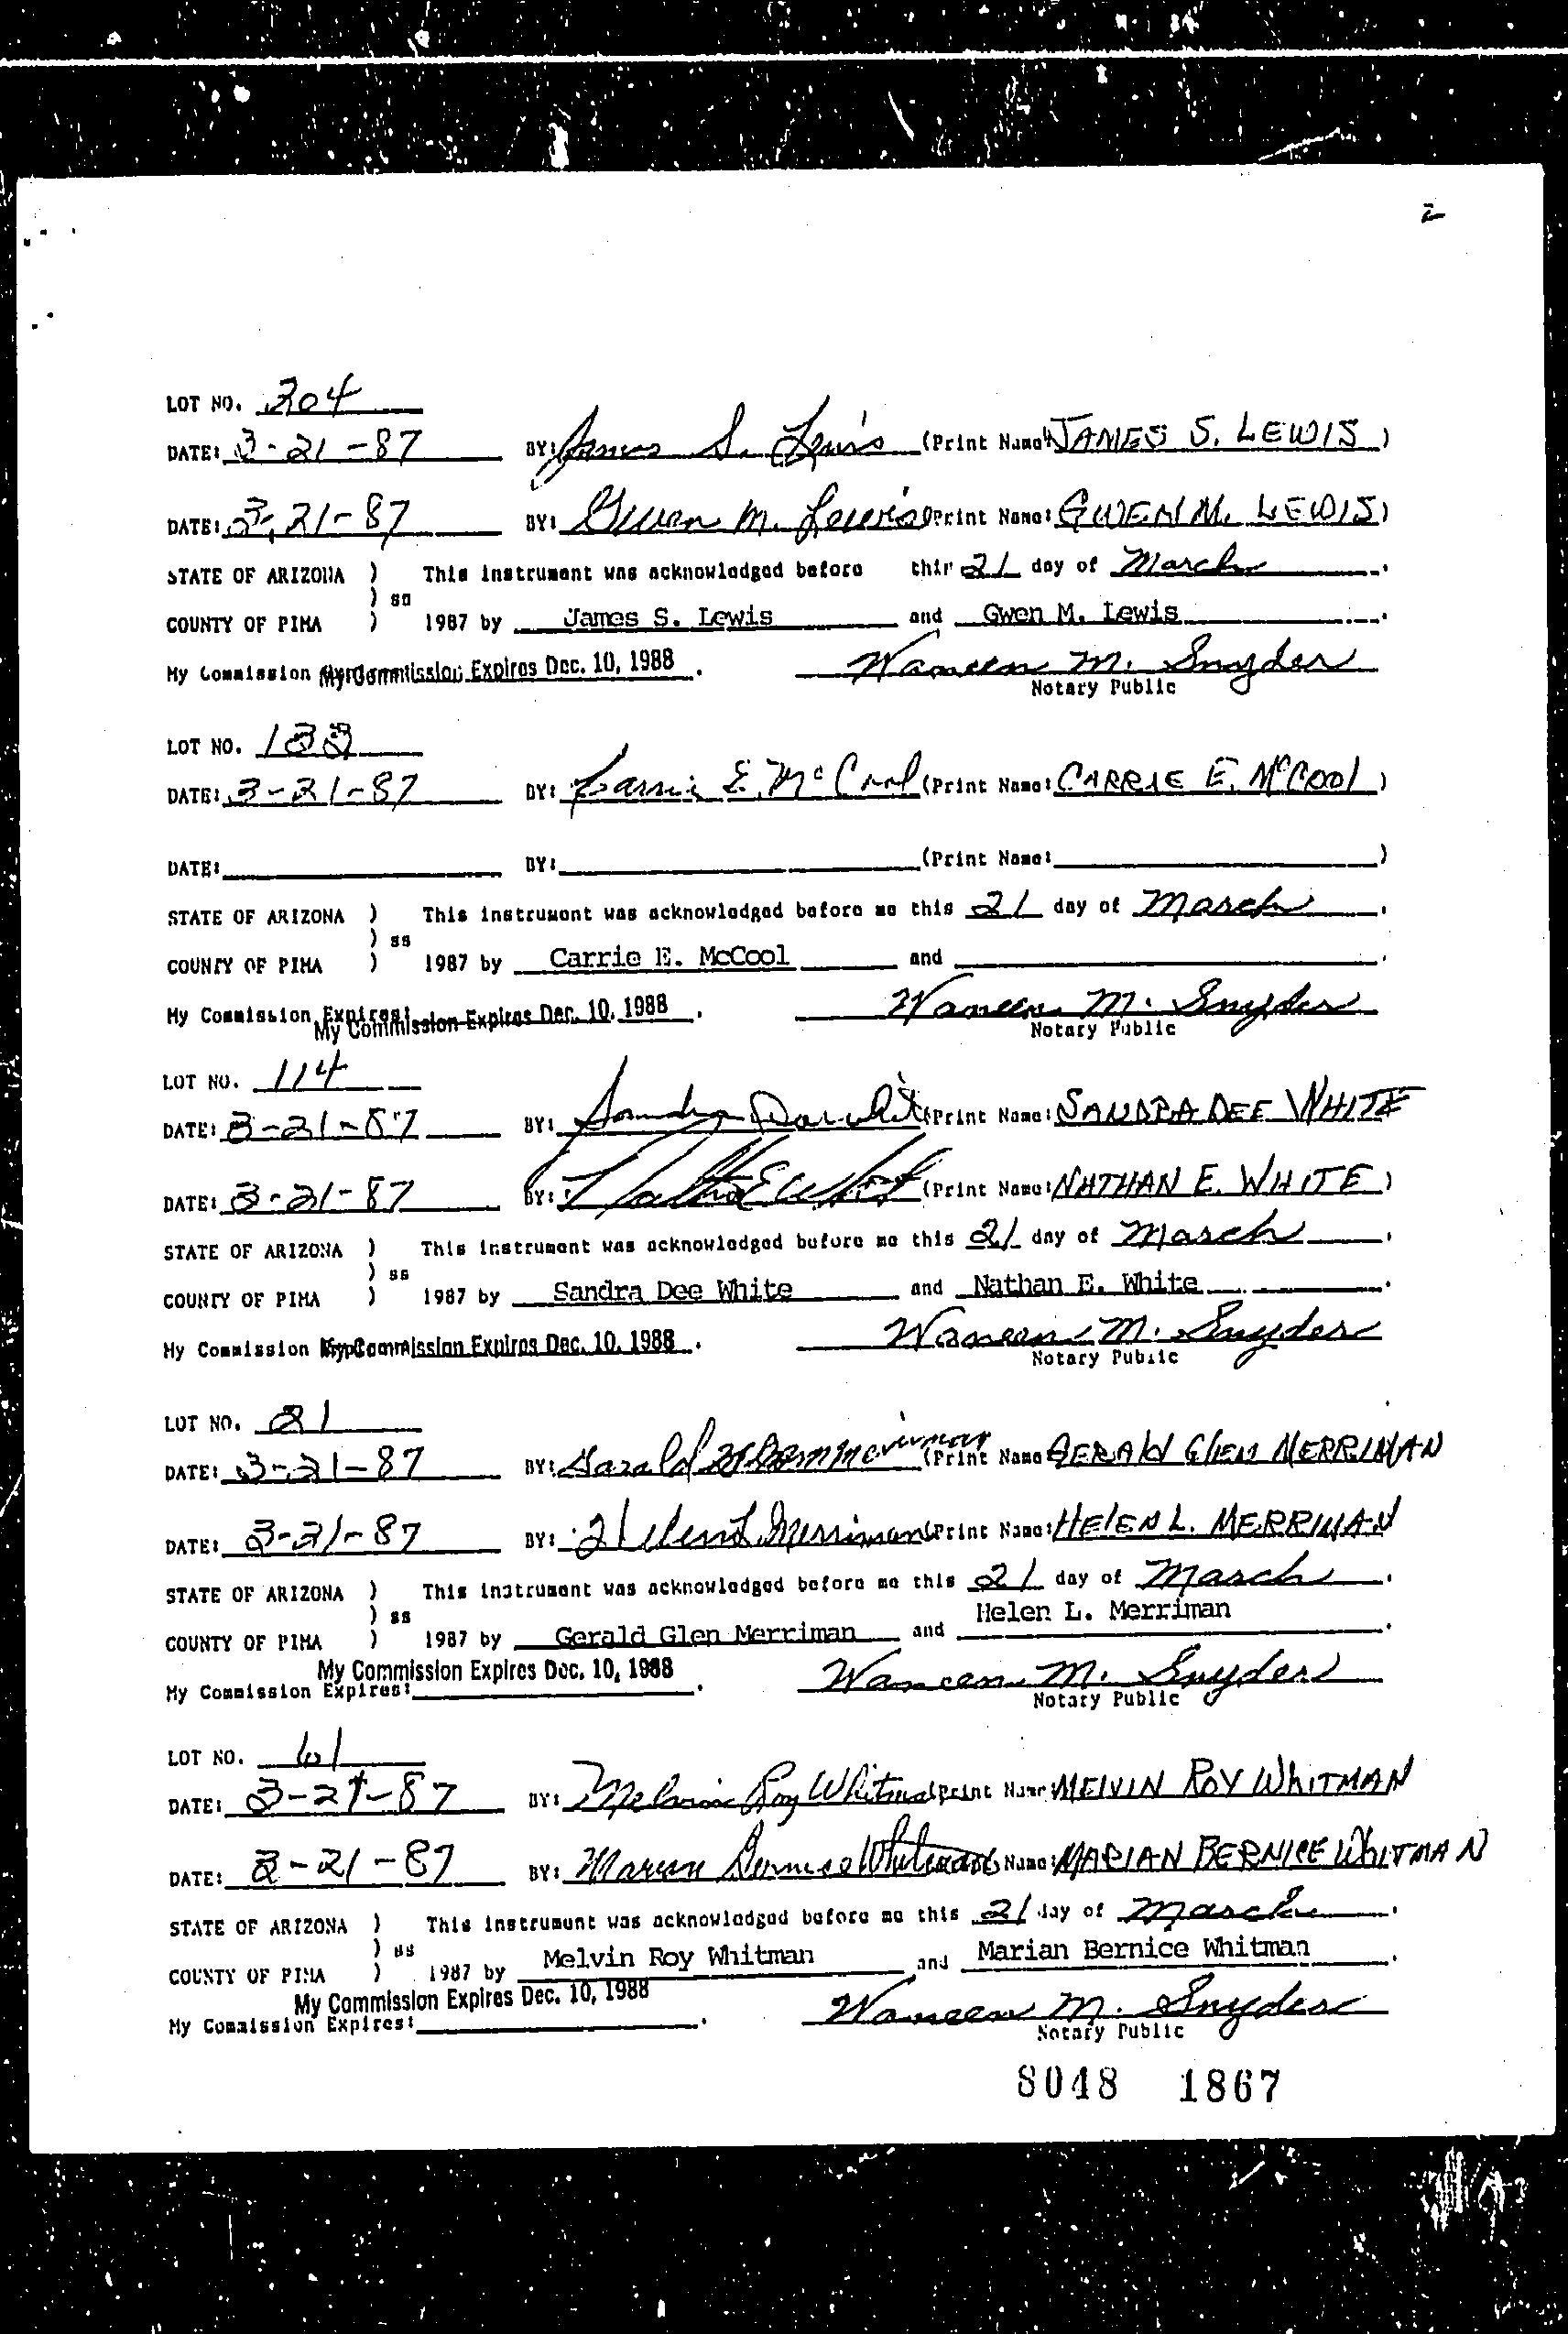 2
LOT NO. 204
DATE: 3-21-87 BY: James S. Lewis (Print Name: JAMES S. LEWIS)
DATE: 3-21-87 BY: Gwen M. Lewis (Print Name: GWEN M. LEWIS)
STATE OF ARIZONA ) This instrument was acknowledged before this 21 day of March.
) ss
COUNTY OF PIMA ) 1987 by James S. Lewis and Gwen M. Lewis.
My Commission My Commission Expires Dec. 10, 1988. Waneen M. Snyder
Notary Public
LOT NO. 133
DATE: 3-21-87 BY: Carrie E. McCool (Print Name: CARRIE E. McCOOl)
DATE: BY: (Print Name: )
STATE OF ARIZONA ) This instrument was acknowledged before me this 21 day of March.
) ss
COUNTY OF PIMA ) 1987 by Carrie E. McCool and .
My Commission Expires: My Commission Expires Dec. 10, 1988. Waneen M. Snyder
Notary Public
LOT NO. 114
DATE: 3-21-87 BY: Sandra Dee White (Print Name: SANDRA DEE WHITE
DATE: 3-21-87 BY: Nathan E White (Print Name: NATHAN E. WHITE)
STATE OF ARIZONA ) This instrument was acknowledged before me this 21 day of March.
) ss
COUNTY OF PIMA ) 1987 by Sandra Dee White and Nathan E. White.
My Commission My Commission Expires Dec. 10, 1988. Waneen M. Snyder
Notary Public
LOT NO. 21
DATE: 3-21-87 BY: Gerald Merriman (Print Name GERAld GlEN MERRIMAN
DATE: 3-21-87 BY: Helen L Merriman (Print Name: HElEN L. MERRIMAN
STATE OF ARIZONA ) This instrument was acknowledged before me this 21 day of March.
) ss Helen L. Merriman
COUNTY OF PIMA ) 1987 by Gerald Glen Merriman and .
My Commission Expires Dec. 10, 1988 Waneen M. Snyder
My Commission Expires: . Notary Public
LOT NO. 61
DATE: 3-21-87 BY: Melvin Roy Whitman (Print Name: MElVIN ROY WhITMAN
DATE: 3-21-87 BY: Marian Bernice Whitman Name: MARIAN BERNICE WhITMAN
STATE OF ARIZONA ) This instrument was acknowledged before me this 21 day of March.
) ss Melvin Roy Whitman Marian Bernice Whitman
COUNTY OF PIMA ) 1987 by and .
My Commission Expires Dec. 10, 1988 Waneen M. Snyder
My Commission Expires: . Notary Public
8048 1867